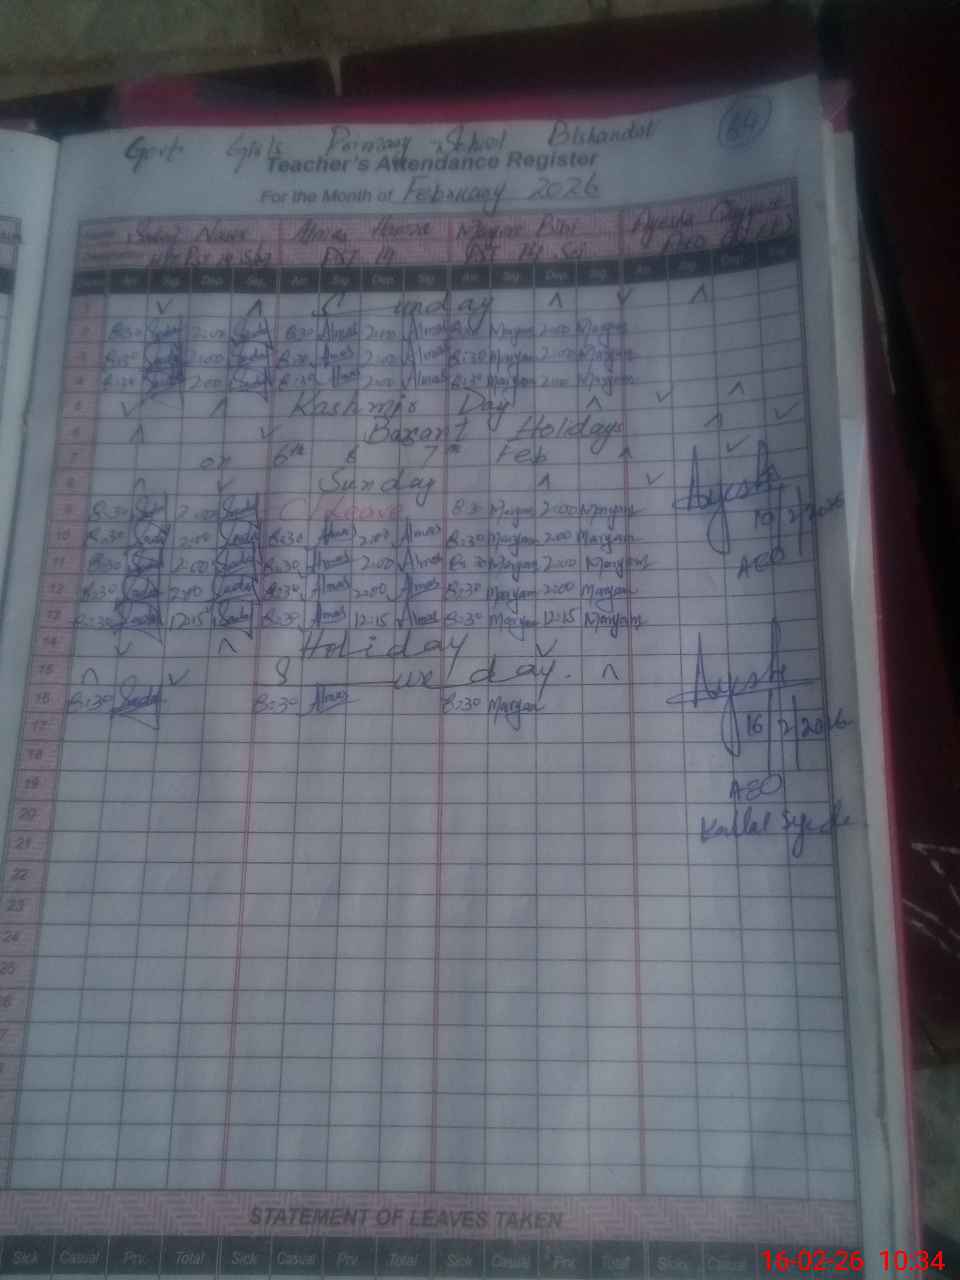 64
Govt. Girls Primary School Bishandot
Teacher's Attendance Register
For the Month of February 2026
Almas
Maryam Bibi
Ayesha
PST
Arr. Sig. Dep. Sig. Arr. Sig. Dep. Sig. Arr. Sig. Dep. Sig. Arr. Sig. Dep. Sig.
1 Sunday
2 8:30 Sadaf 2:00 Sadaf 8:30 Almas 2:00 Almas 8:30 Maryam 2:00 Maryam
3 8:30 Sadaf 2:00 Sadaf 8:30 Almas 2:00 Almas 8:30 Maryam 2:00 Maryam
4 8:30 Sadaf 2:00 Sadaf 8:30 Almas 2:00 Almas 8:30 Maryam 2:00 Maryam
5 Kashmir Day
6 Basant Holidays
7 on 6th & 7th Feb
8 Sunday
9 8:30 Sadaf 2:00 Sadaf C/Leave 8:30 Maryam 2:00 Maryam
10 8:30 Sadaf 2:00 Sadaf 8:30 Almas 2:00 Almas 8:30 Maryam 2:00 Maryam
11 8:30 Sadaf 2:00 Sadaf 8:30 Almas 2:00 Almas 8:30 Maryam 2:00 Maryam
12 8:30 Sadaf 2:00 Sadaf 8:30 Almas 2:00 Almas 8:30 Maryam 2:00 Maryam
13 8:30 Sadaf 12:15 Sadaf 8:30 Almas 12:15 Almas 8:30 Maryam 12:15 Maryam
14 Holiday
15 Sunday
16 8:30 Sadaf 8:30 Almas 8:30 Maryam
Ayesha
10/2/2026
AEO
Ayesha
16/2/2026
AEO
17
18
19
20
21
22
23
24
25
STATEMENT OF LEAVES TAKEN
Sick Casual Prv. Total Sick Casual Prv. Total Sick Casual Prv. Total Sick Casual
16-02-26 10:34